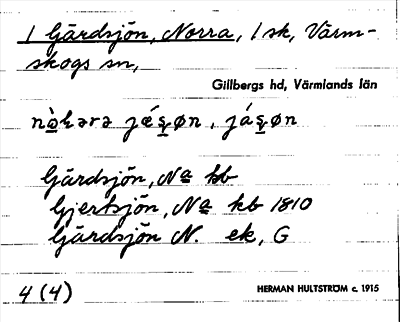 1 Gärdsjön, Norra, 1 sk, Värm-
skogs sn,
Gillbergs hd, Värmlands län
Gärdsjön, Na kb
Gjertsjön, Na kb 1810
Gärdsjön N. ek, G
4 (4)
HERMAN HULTSTRÖM c. 1915